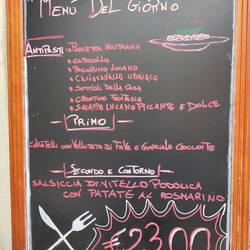 Menù Del Giorno
Antipasti • Pancetta Nostrana
• Capocollo
• Pecorino Lucano
• Caciocavallo Ubriaco
• Sottoli della Casa
• Crostino Fantasia
• Salame Lucano Piccante e Dolce
Primo
Cavatelli con Vellutata di Fave e Guanciale Croccante
Secondo e Contorno
Salsiccia di Vitello Podolica
con Patate al Rosmarino
€23,00